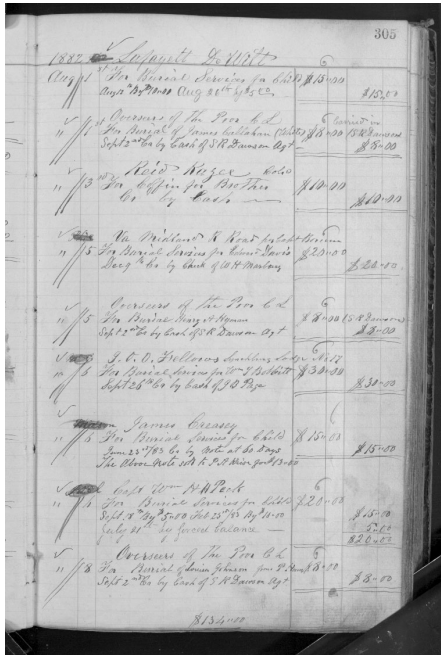 305
1882 Lafayett DeWitt
Aug 1st For Burial Services for Child $15-00
Aug 20th $15,00
Overseers of the Poor C L
" 1 For Burial of James Callahan $8-00 S R Dawson
Sept 2nd Co by Cash of S R Dawson Agt $8-00
Reid Colo
" 3rd For Coffin for Brother $10-00
Co by Cash $10-00
Va Midland R Road
" 5 For Burial Services for Davis $20-00
Co by Check of W H Marbury $20-00
Overseers of the Poor C L
" 5 For Burial Mary A Hyman $8-00 S R Dawson
Sept 2nd Co by Cash of S R Dawson Agt $8-00
I. O. O. Fellows Lodge No 17
" 6 For Burial Services for Wm $30-00
Sept 26th Co by Cash of J D Page $30-00
James Creasey
" 6 For Burial Services for Child $15-00
June 23rd /83 Co by Note at 60 Days $15-00
The Above Note sold to for $13-00
Capt Wm H H Peck
" 6 For Burial Services for $20-00
Sept 8th By $5-00 Feb 23rd /83 By 10-00 $15-00
July 21st by balance 5-00
$20-00
Overseers of The Poor C L
" 8 For Burial of Louisa Johnson $8-00
Sept 2nd Co by Cash of S R Dawson Agt $8-00
$134-00